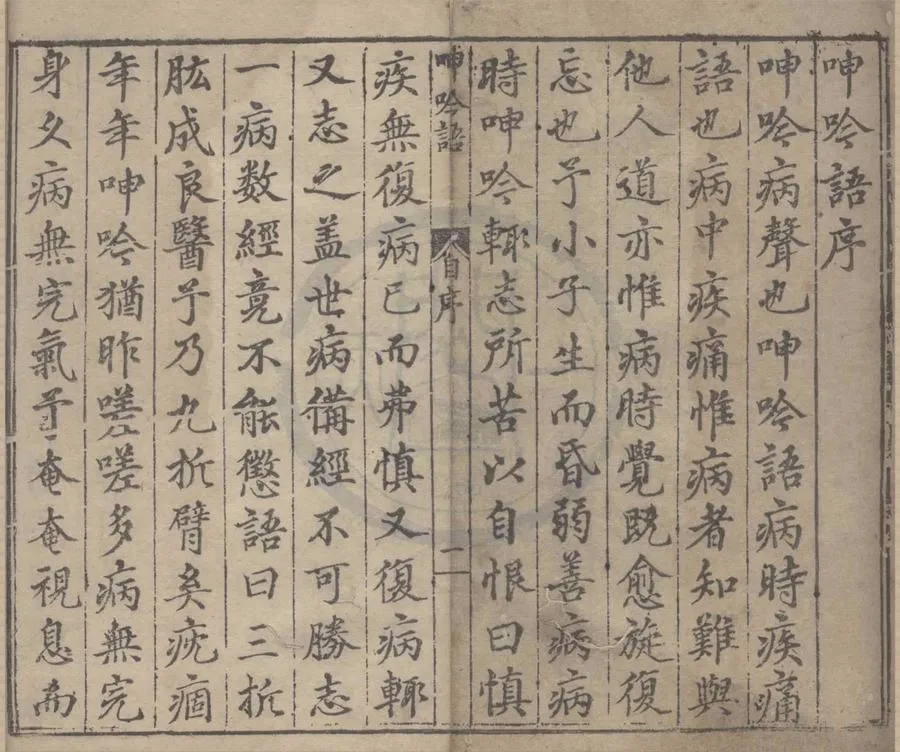 呻吟語序
呻吟病聲也呻吟語病時疾痛
語也病中疾痛惟病者知難與
他人道亦惟病時覺既愈旋復
忘也予小子生而昏弱善病病
時呻吟輒志所苦以自恨曰慎
呻吟語 自序 一
疾無復病已而弗慎又復病輒
又志之盖世病備經不可勝志
一病數經竟不能懲語曰三折
肱成良醫予乃九折臂矣疣痼
年年呻吟猶昨嗟嗟多病無完
身久病無完氣予奄奄視息而